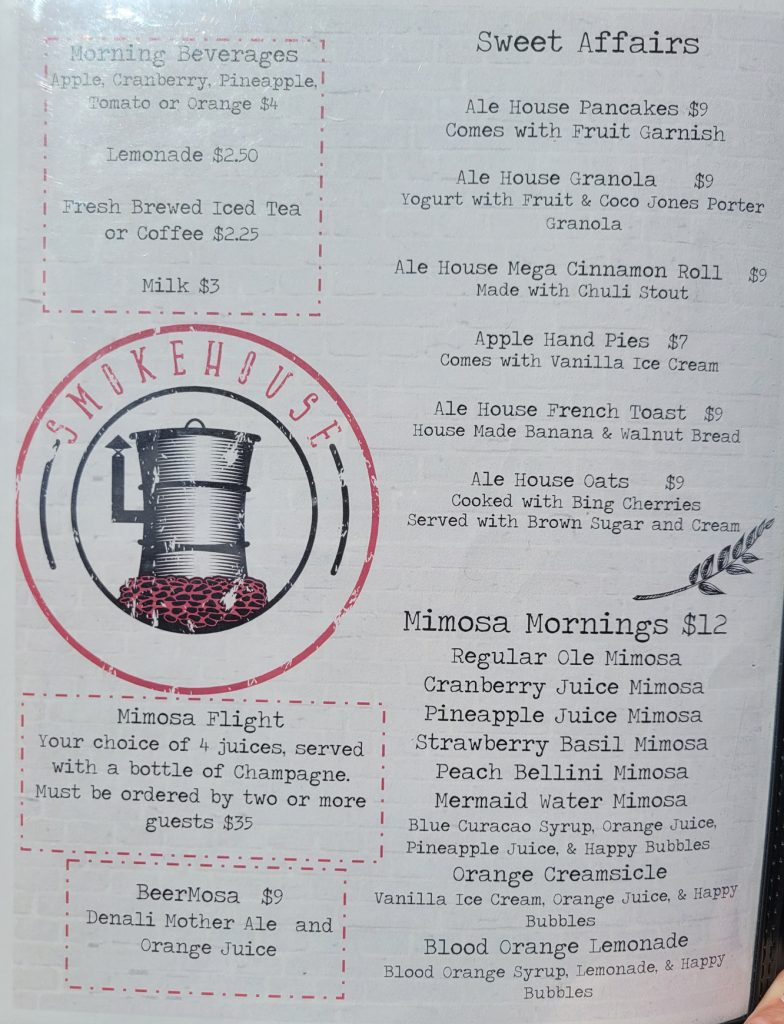 Morning Beverages
Apple, Cranberry, Pineapple,
Tomato or Orange $4
Lemonade $2.50
Fresh Brewed Iced Tea
or Coffee $2.25
Milk $3
SMOKEHOUSE
Mimosa Flight
Your choice of 4 juices, served
with a bottle of Champagne.
Must be ordered by two or more
guests $35
BeerMosa $9
Denali Mother Ale and
Orange Juice
Sweet Affairs
Ale House Pancakes $9
Comes with Fruit Garnish
Ale House Granola $9
Yogurt with Fruit & Coco Jones Porter
Granola
Ale House Mega Cinnamon Roll $9
Made with Chuli Stout
Apple Hand Pies $7
Comes with Vanilla Ice Cream
Ale House French Toast $9
House Made Banana & Walnut Bread
Ale House Oats $9
Cooked with Bing Cherries
Served with Brown Sugar and Cream
Mimosa Mornings $12
Regular Ole Mimosa
Cranberry Juice Mimosa
Pineapple Juice Mimosa
Strawberry Basil Mimosa
Peach Bellini Mimosa
Mermaid Water Mimosa
Blue Curacao Syrup, Orange Juice,
Pineapple Juice, & Happy Bubbles
Orange Creamsicle
Vanilla Ice Cream, Orange Juice, & Happy
Bubbles
Blood Orange Lemonade
Blood Orange Syrup, Lemonade, & Happy
Bubbles